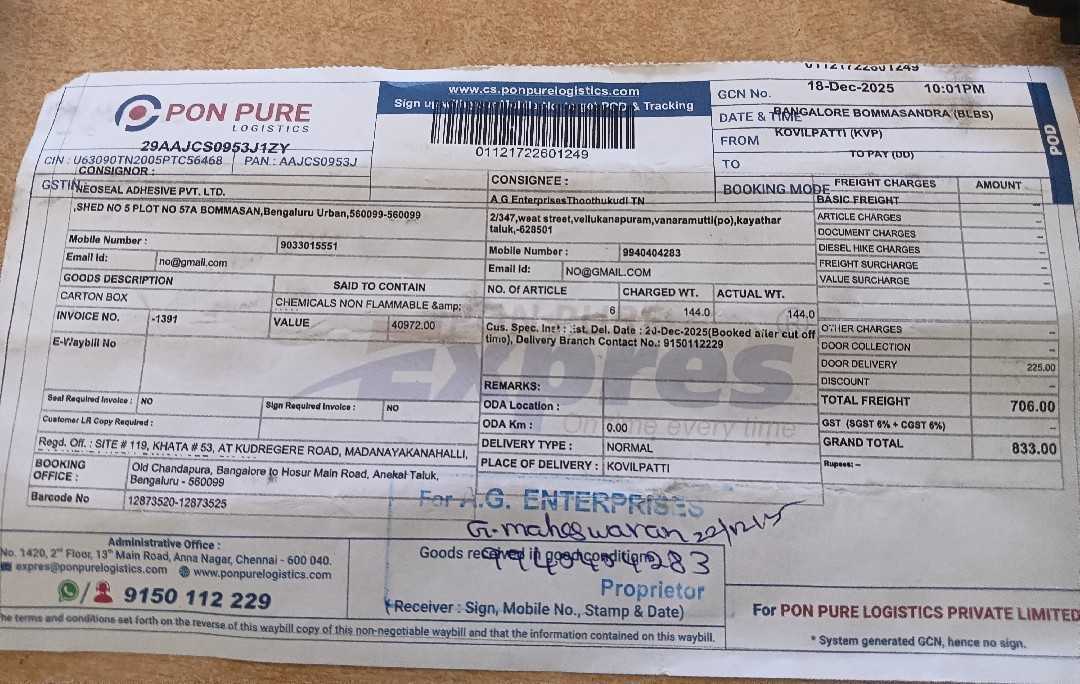 01121722601249
PON PURE
LOGISTICS
29AAJCS0953J1ZY
CIN : U63090TN2005PTC56468 PAN : AAJCS0953J
www.cs.ponpurelogistics.com
Sign up & Tracking
01121722601249
GCN No.
18-Dec-2025 10:01PM
DATE & TIME
BANGALORE BOMMASANDRA (BLBS)
FROM
KOVILPATTI (KVP)
TO
TO PAY (DD)
BOOKING MODE
POD
CONSIGNOR :
GSTIN
NEOSEAL ADHESIVE PVT. LTD.
,SHED NO 5 PLOT NO 57A BOMMASAN,Bengaluru Urban,560099-560099
Mobile Number : 9033015551
Email Id: no@gmail.com
GOODS DESCRIPTION SAID TO CONTAIN
CARTON BOX CHEMICALS NON FLAMMABLE &amp;
INVOICE NO. -1391 VALUE 40972.00
E-Waybill No
Seal Required Invoice : NO Sign Required Invoice : NO
Customer LR Copy Required :
Regd. Off. : SITE # 119, KHATA # 53, AT KUDREGERE ROAD, MADANAYAKANAHALLI,
BOOKING OFFICE : Old Chandapura, Bangalore to Hosur Main Road, Anekal Taluk,
Bengaluru - 560099
Barcode No 12873520-12873525
CONSIGNEE :
A G EnterprisesThoothukudi TN
2/347,weat street,vellukanapuram,vanaramutti(po),kayathar
taluk,-628501
Mobile Number : 9940404283
Email Id: NO@GMAIL.COM
NO. OF ARTICLE CHARGED WT. ACTUAL WT.
6 144.0 144.0
Cus. Spec. Inst : Est. Del. Date : 20-Dec-2025(Booked after cut off
time), Delivery Branch Contact No.: 9150112229
PON PURE
Expres
On time every time
REMARKS:
ODA Location :
ODA Km : 0.00
DELIVERY TYPE : NORMAL
PLACE OF DELIVERY : KOVILPATTI
FREIGHT CHARGES AMOUNT
BASIC FREIGHT –
ARTICLE CHARGES –
DOCUMENT CHARGES –
DIESEL HIKE CHARGES –
FREIGHT SURCHARGE –
VALUE SURCHARGE –
OTHER CHARGES –
DOOR COLLECTION –
DOOR DELIVERY 225.00
DISCOUNT –
TOTAL FREIGHT 706.00
GST (SGST 6% + CGST 6%) –
GRAND TOTAL 833.00
Rupees: –
For A.G. ENTERPRISES
G. maheswaran 22/12/15
Goods received in good condition
9940404283
Proprietor
(Receiver : Sign, Mobile No., Stamp & Date)
Administrative Office :
No. 1420, 2nd Floor, 13th Main Road, Anna Nagar, Chennai - 600 040.
expres@ponpurelogistics.com www.ponpurelogistics.com
9150 112 229
The terms and conditions set forth on the reverse of this waybill copy of this non-negotiable waybill and that the information contained on this waybill.
For PON PURE LOGISTICS PRIVATE LIMITED
* System generated GCN, hence no sign.